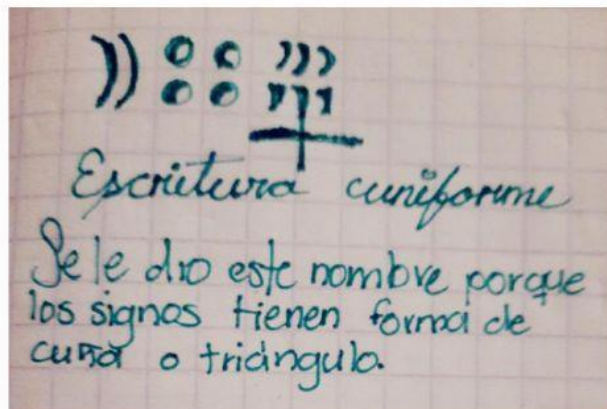 Escritura cuniforme
Se le dio este nombre porque
los signos tienen forma de
cuña o triángulo.